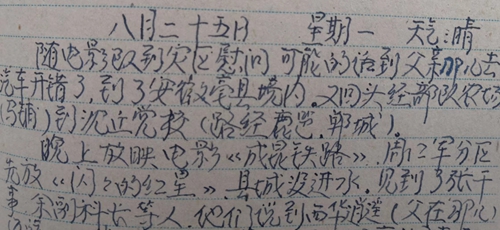 八月二十五日 星期一 天气:晴
随电影队到灾区慰问 可能的话到父亲那儿去
汽车开错了,到了安徽亳县境内.又回头经部队农场
(马铺)到沈丘党校(路经鹿邑,郸城).
晚上放映电影《成昆铁路》.周口军分区
先放《闪々的红星》.县城没进水.见到了张干
事 余副科长等人.他们说到西华逍遥(父在那儿)